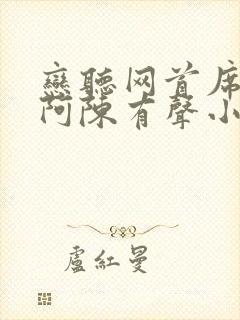 戀聽网首席
阿陳有聲小
盧紅曼